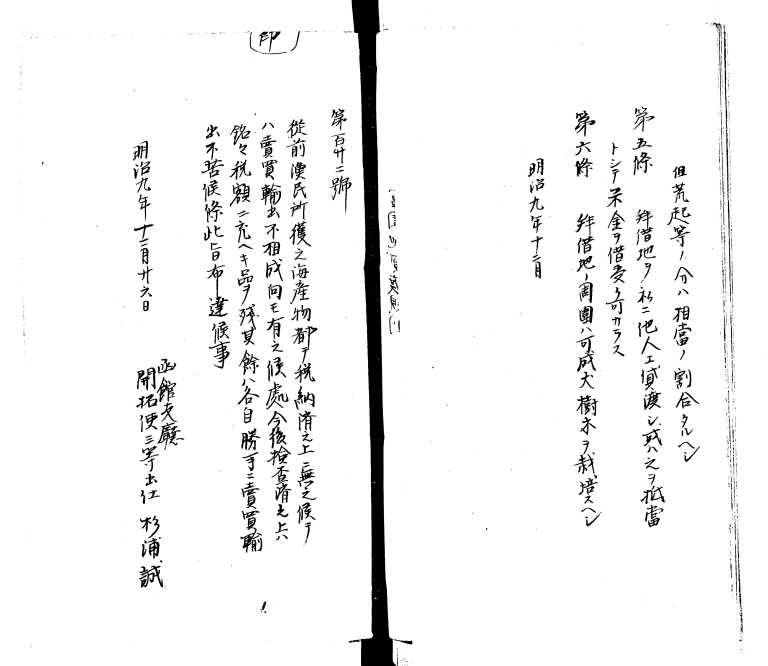 但荒起等ノ分ハ相當ノ割合タルヘシ
第五條 拜借地ヲ私ニ他人エ貸渡シ或ハ之ヲ抵當
トシテ米金ヲ借受ク可カラス
第六條 拜借地ノ周圍ハ可成丈樹木ヲ栽培スヘシ
明治九年十二月
印
第百廿二號
從前漁民所獲之海産物都テ税納濟之上ニ無之候テ
ハ賣買輸出不相成向モ有之候處今後檢査濟之上ハ
銘々税額ニ充ヘキ品ヲ殘其餘ハ各自勝手ニ賣買輸
出不苦候條此旨布達候事
明治九年十二月廿六日
函館支廳
開拓使三等出仕 杉浦誠